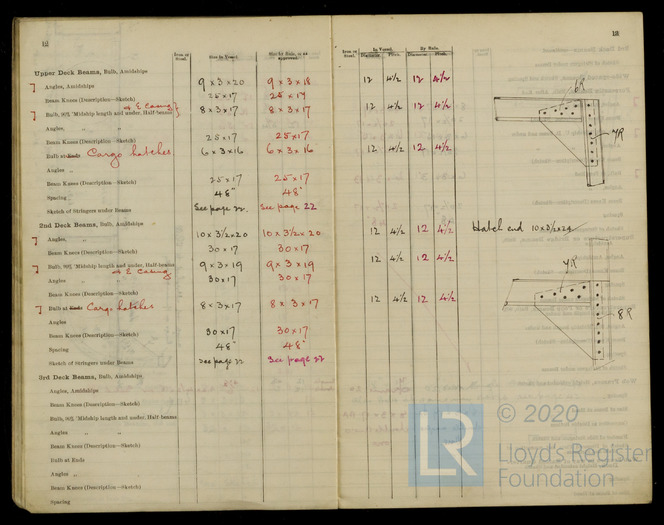 12
Iron or Steel.
Size in Vessel.
Size by Rule, or as approved.
Upper Deck Beams, Bulb, Amidships
Angles, Amidships 9 x 3 x 20 9 x 3 x 18
Beam Knees (Description—Sketch) 25 x 17 25 x 17
& E Casing
Bulb, 90% 'Midship length and under, Half-beams 8 x 3 x 17 8 x 3 x 17
Angles, „ „
Beam Knees (Description—Sketch) 25 x 17 25 x 17
Bulb at Ends Cargo hatches 6 x 3 x 16 6 x 3 x 16
Angles „
Beam Knees (Description—Sketch) 25 x 17 25 x 17
Spacing 48" 48"
Sketch of Stringers under Beams See page 22. See page 22
2nd Deck Beams, Bulb, Amidships
Angles, „ 10 x 3/2 x 20 10 x 3/2 x 20
Beam Knees (Description—Sketch) 30 x 17 30 x 17
Bulb, 90% 'Midship length and under, Half-beams 9 x 3 x 19 9 x 3 x 19
& E Casing
Angles „ „ 30 x 17 30 x 17
Beam Knees (Description—Sketch)
Bulb at Ends Cargo hatches 8 x 3 x 17 8 x 3 x 17
Angles
Beam Knees (Description—Sketch) 30 x 17 30 x 17
Spacing 48" 48"
Sketch of Stringers under Beams See page 22 See page 22
3rd Deck Beams, Bulb, Amidships
Angles, Amidships
Beam Knees (Description—Sketch)
Bulb, 90% 'Midship length and under, Half-beams
Angles „ „
Beam Knees (Description—Sketch)
Bulb at Ends
Angles „
Beam Knees (Description—Sketch)
Spacing
Iron or Steel.
In Vessel.
By Rule.
Diameter. Pitch. Diameter. Pitch.
12 4/2 12 4/2
12 4/2 12 4/2
12 4/2 12 4/2
12 4/2 12 4/2
12 4/2 12 4/2
12 4/2 12 4/2
6R
7R
Hatch end 10 x 3/2 x 24
7R
8R
LR
© 2020
Lloyd's Register
Foundation